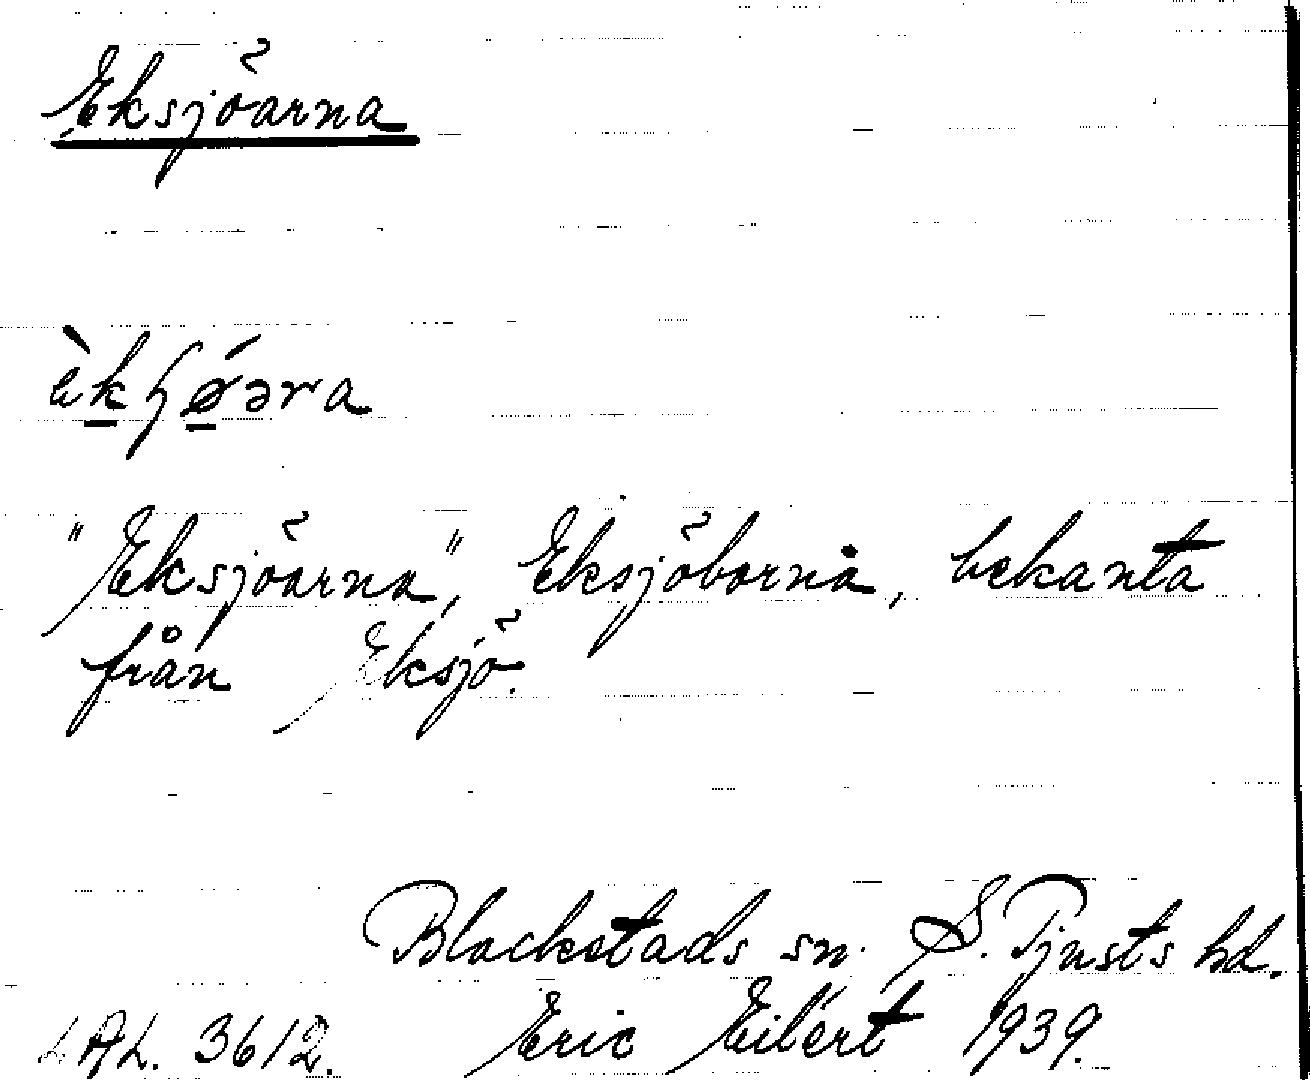 Eksjöarna
èkɧǿəra
"Eksjöarna", Eksjöborna, bekanta
från Eksjö.
Blackstads sn. S. Tjusts hd.
LAL. 3612. Eric Eilért 1939.